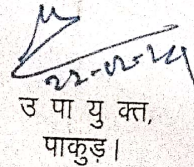 22-02-24
उ पा यु क्त,
पाकुड़।